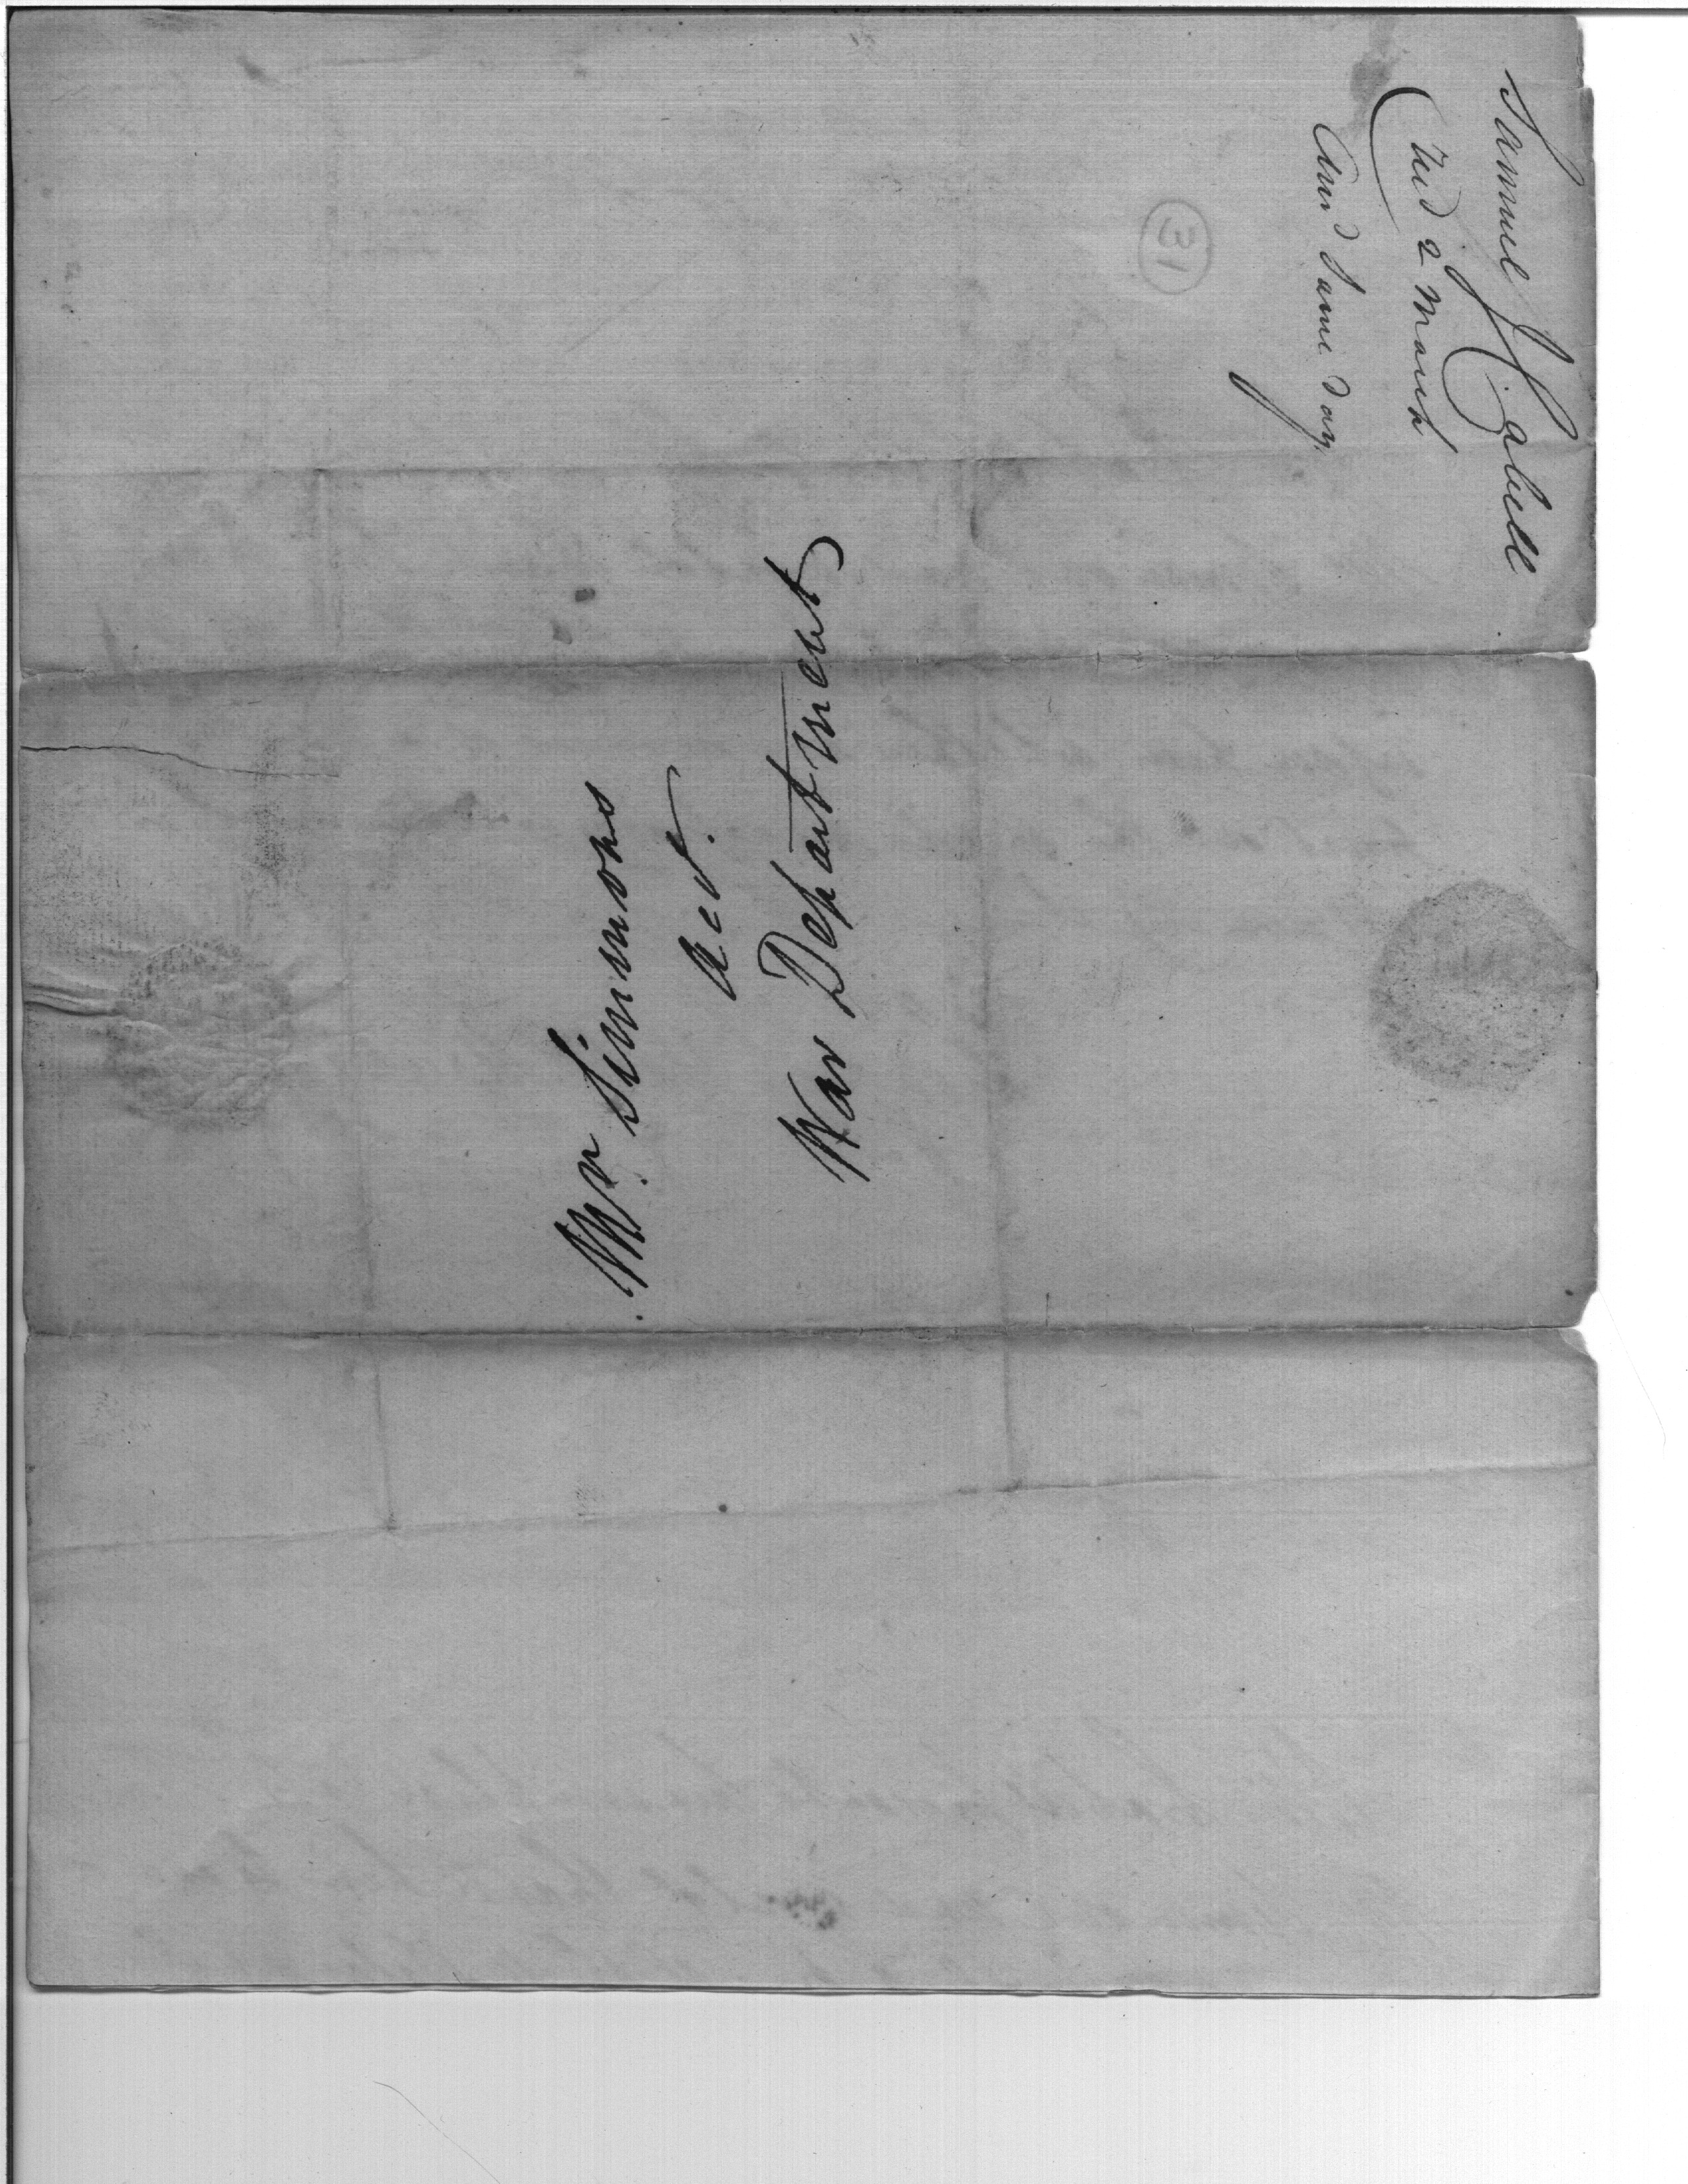 Samuel J Cabell
Recd 2 March
Ansd Same day
31
Mr Simmons
Acct.
War Department